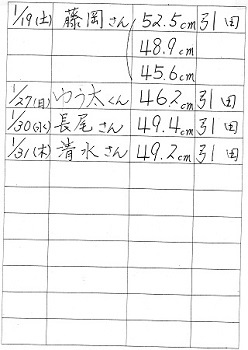 1/19(土) 藤岡さん 52.5cm 引田
48.9cm
45.6cm
1/27(日) ゆう太くん 46.2cm 引田
1/30(水) 長尾さん 49.4cm 引田
1/31(木) 清水さん 49.2cm 引田